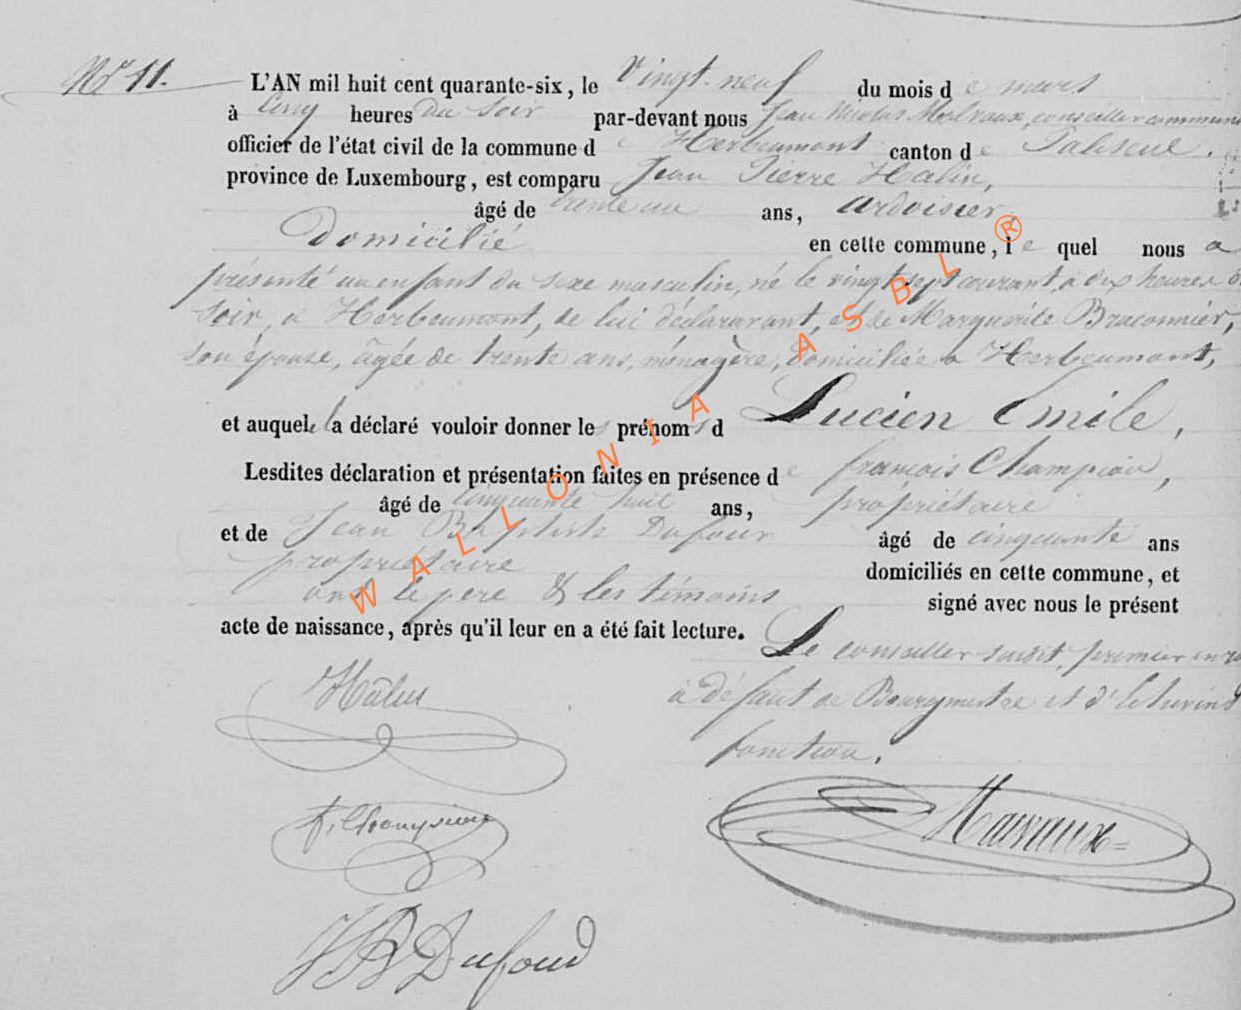 N° 11.
L'AN mil huit cent quarante-six, le vingt-neuf du mois de mars
à cinq heures du soir par-devant nous Jean Nicolas Malvaux, conseiller commun
officier de l'état civil de la commune de Herbeumont canton de Paliseul.
province de Luxembourg, est comparu Jean Pierre Halin,
âgé de trente un ans, ardoisier,
Domicilié en cette commune, lequel nous a
présenté un enfant du sexe masculin, né le vingt sept courant, à dix heures d
soir, à Herbeumont, de lui déclararant, et de Marguerite Braconnier,
son épouse, âgée de trente ans, ménagère, domiciliée à Herbeumont,
et auquel il a déclaré vouloir donner les prénoms d Lucien Emile,
Lesdites déclaration et présentation faites en présence de françois Champion,
âgé de cinquante huit ans, propriétaire
et de Jean Baptiste Dufour âgé de cinquante ans
propriétaire domiciliés en cette commune, et
ont le père & les témoins signé avec nous le présent
acte de naissance, après qu'il leur en a été fait lecture.
Le conseiller susdit, premier en ra
à défaut de Bourgmestre et d'échevins
fonction.
J B Dufour
WALLONIA ASBL ®